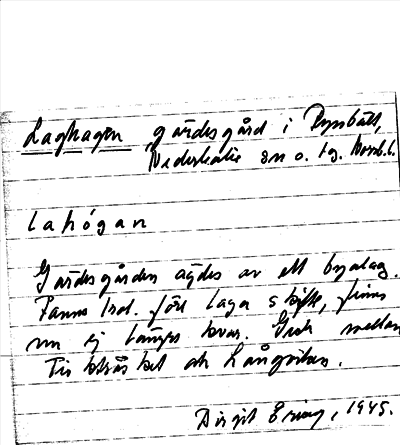 Laghagen, gärdsgård i Pynbäll,
Nederkalix sn o. tg. Norrb. l.
lahógan
Gärdsgården ägdes av ett byalag.
Fanns trol. före laga skifte, finns
nu ej längre kvar. Gick mellan
och Långviken.
Birgit Ering, 1945.